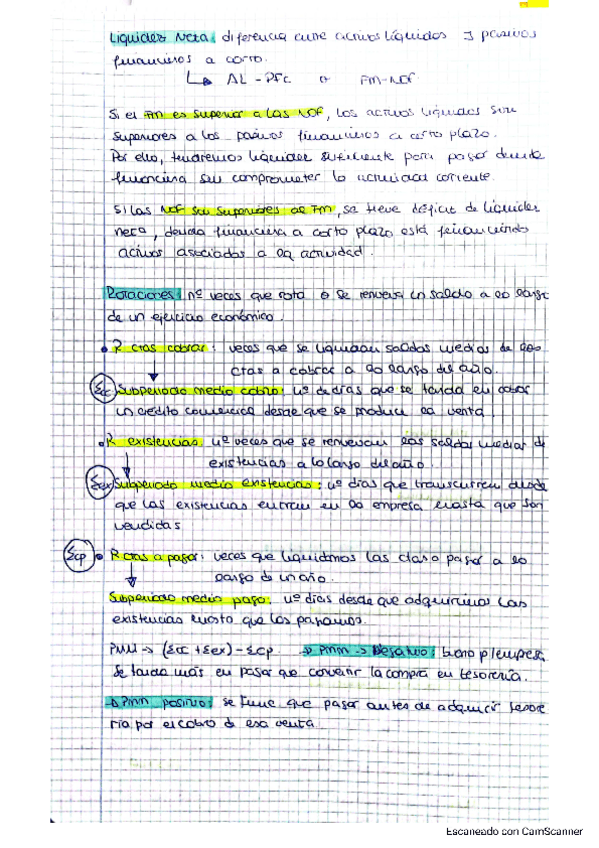 Liquidez Neta: diferencia entre activos líquidos y pasivos
financieros a corto.
↳ AL - PFc o FM-NOF
Si el FM es superior a las NOF, los activos líquidos son
superiores a los pasivos financieros a corto plazo.
Por ello, tendremos liquidez suficiente para pagar deuda
financiera sin comprometer la actividad corriente.
Si las NOF son superiores al FM, se tiene déficit de liquidez
neta, deuda financiera a corto plazo está financiando
activos asociados a la actividad.
Rotaciones: nº veces que rota o se renueva un saldo a lo largo
de un ejercicio económico.
• R ctas cobrar: veces que se liquidan saldos medios de las
ctas a cobrar a lo largo del año.
Σcc Subperiodo medio cobro: nº de días que se tarda en cobrar
un crédito comercial desde que se produce la venta.
• R existencias: nº veces que se renuevan los saldos medios de
existencias a lo largo del año.
Σex Subperiodo medio existencias: nº días que transcurren desde
que las existencias entran en la empresa hasta que son
vendidas
Σcp • R ctas a pagar: veces que liquidamos las a pagar a lo
largo de un año.
Subperiodo medio pago: nº días desde que adquirimos las
existencias hasta que las pagamos.
PMM → (Σcc + Σex) - Σcp → PMM → Negativo: bueno p/empresa
Se tarda más en pagar que convertir la compra en tesorería.
→ PMM positivo: se tiene que pagar antes de adquirir tesore
ría por el cobro de esa venta.
Escaneado con CamScanner